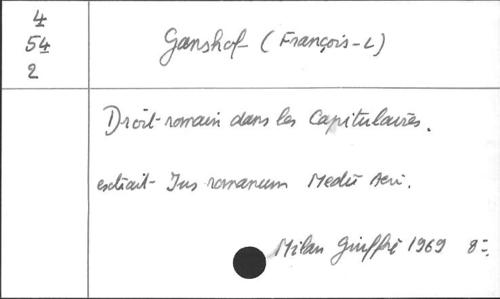 4
54
2
Ganshof (François-L)
Droit romain dans les Capitulaires.
extrait Jus romanum Medii Aevi.
Milan Giuffrè 1969 8=.